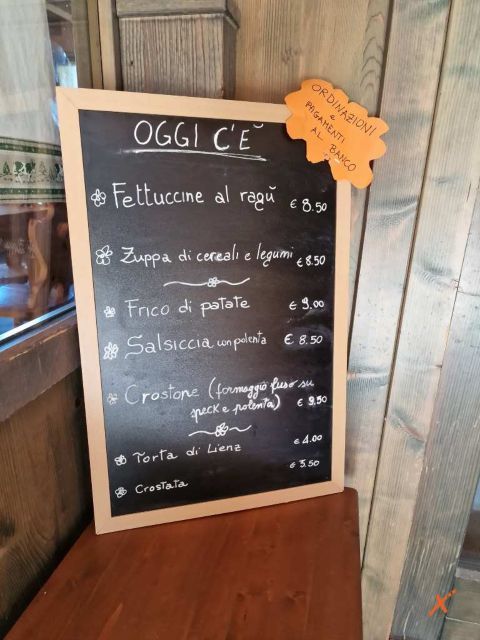 OGGI C'È
ORDINAZIONI
e
PAGAMENTI
AL BANCO
Fettuccine al ragŭ € 8.50
Zuppa di cereali e legumi € 8.50
Frico di patate € 9.00
Salsiccia con polenta € 8.50
Crostone (formaggio fuso su
speck e polenta) € 9,50
Torta di Lienz € 4.00
Crostata € 3.50